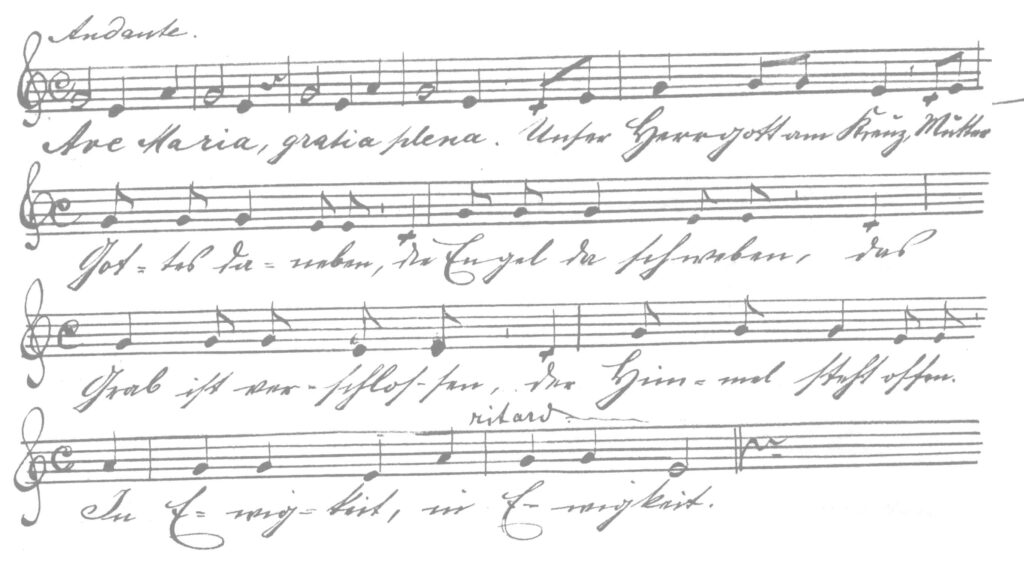 Andante.
Ave Maria, gratia plena. Unser Herrgott am Kreuz, Mutter
Got-tes da-neben, die Engel da schweben, das
Grab ist ver-schlos-sen, der Him-mel steht offen.
ritard
In E-wig-keit, in E-wigkeit.